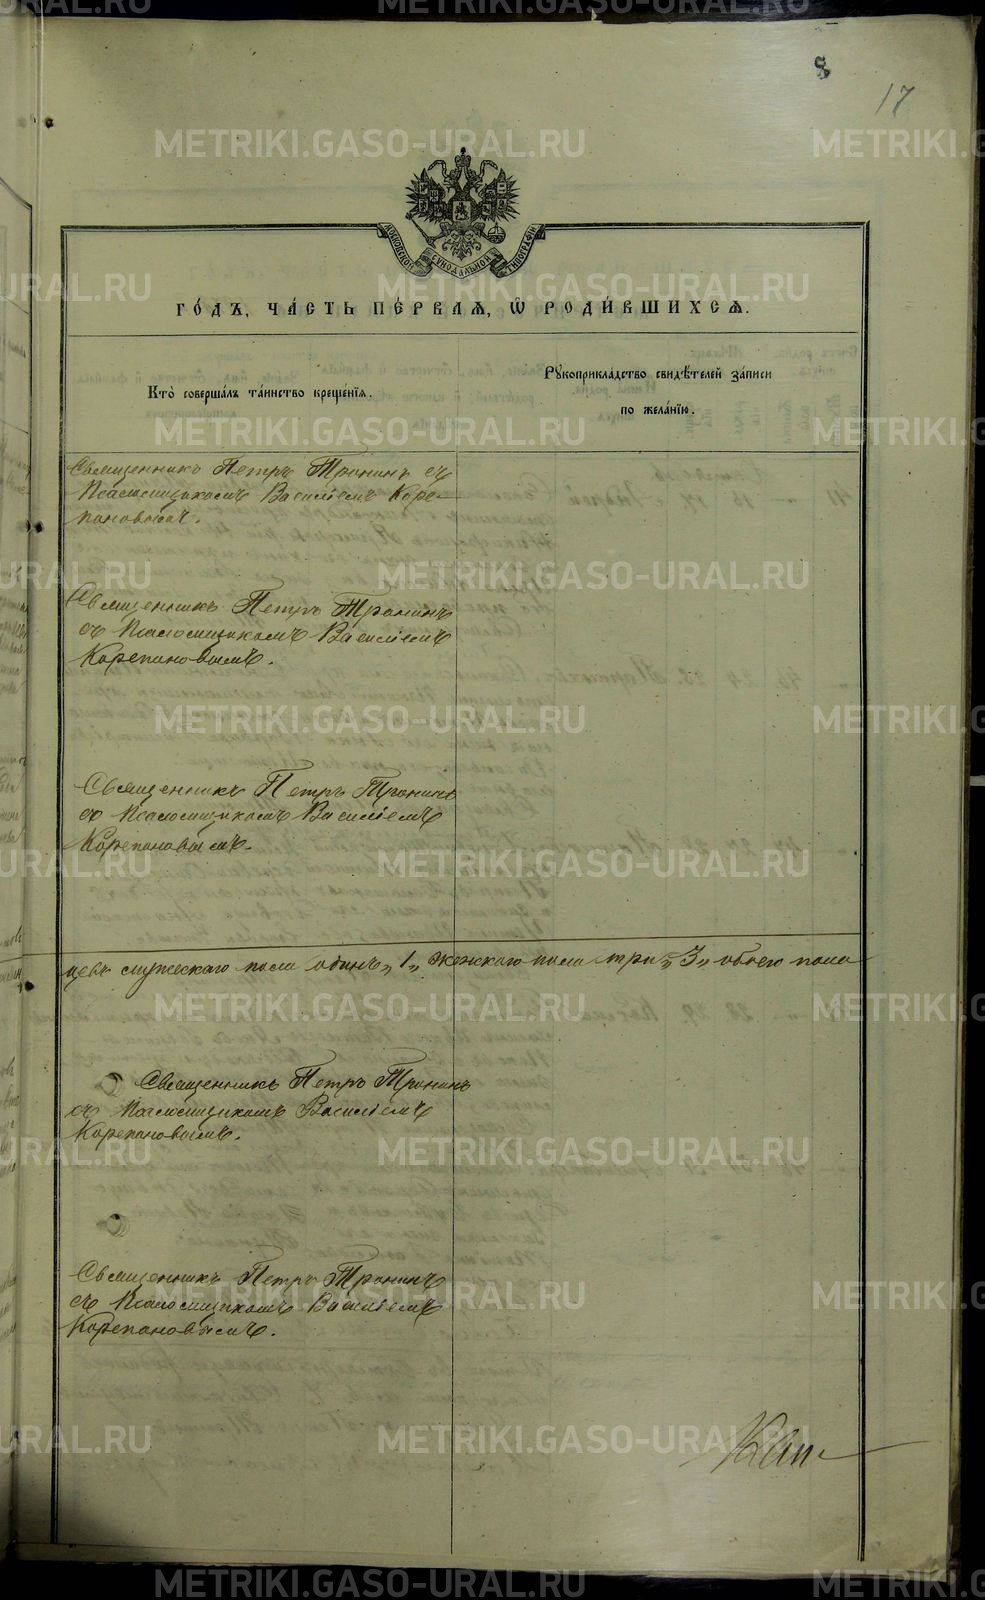 8
17
МОСКОВСКОЙ СУНОДАЛЬНОЙ ТИПОГРАФIИ
ГО́ДЪ, ЧА́СТЬ ПЕ́РВАѦ, Ѡ РОДИ́ВШИХСѦ.
Кто̀ соверша́лъ та́инство креще́нїѧ.
Рꙋкоприкла́дство свидѣ́телей за́писи
по жела́нїю.
Священникъ Петръ Тронинъ съ
Псаломщикомъ Василіемъ Коре-
пановымъ.
Священникъ Петръ Тронинъ
съ Псаломщикомъ Василіемъ
Корепановымъ.
Священникъ Петръ Тронинъ
съ Псаломщикомъ Василіемъ
Корепановымъ.
мужескаго пола одинъ „1„ женскаго пола три „3„ обоего пола
Священникъ Петръ Тронинъ
съ Псаломщикомъ Василіемъ
Корепановымъ.
Священникъ Петръ Тронинъ
съ Псаломщикомъ Василіемъ
Корепановымъ.
METRIKI.GASO-URAL.RU